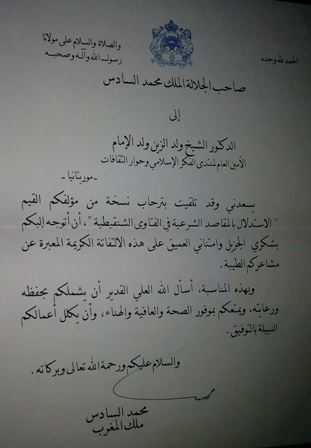 الحمد لله وحده
والصلاة والسلام على مولانا
رسول الله وآله وصحبه
صاحب الجلالة الملك محمد السادس
إلى
الدكتور الشيخ ولد الزين ولد الإمام
الأمين العام لمنتدى الفكر الإسلامي وحوار الثقافات
-موريتانيا-
يسعدني وقد تلقيت بترحاب نسخة من مؤلفكم القيم
"الاستدلال بالمقاصد الشرعية في الفتاوى الشنقيطية"، أن أتوجه إليكم
بشكري الجزيل وامتناني العميق على هذه الالتفاتة الكريمة المعبرة عن
مشاعركم الطيبة.
وبهذه المناسبة، أسأل الله العلي القدير أن يشملكم بحفظه
ورعايته، ويمتعكم بموفور الصحة والعافية والهناء، وأن يكلل أعمالكم
النبيلة بالتوفيق.
والسلام عليكم ورحمة الله تعالى وبركاته.
محمد السادس
ملك المغرب